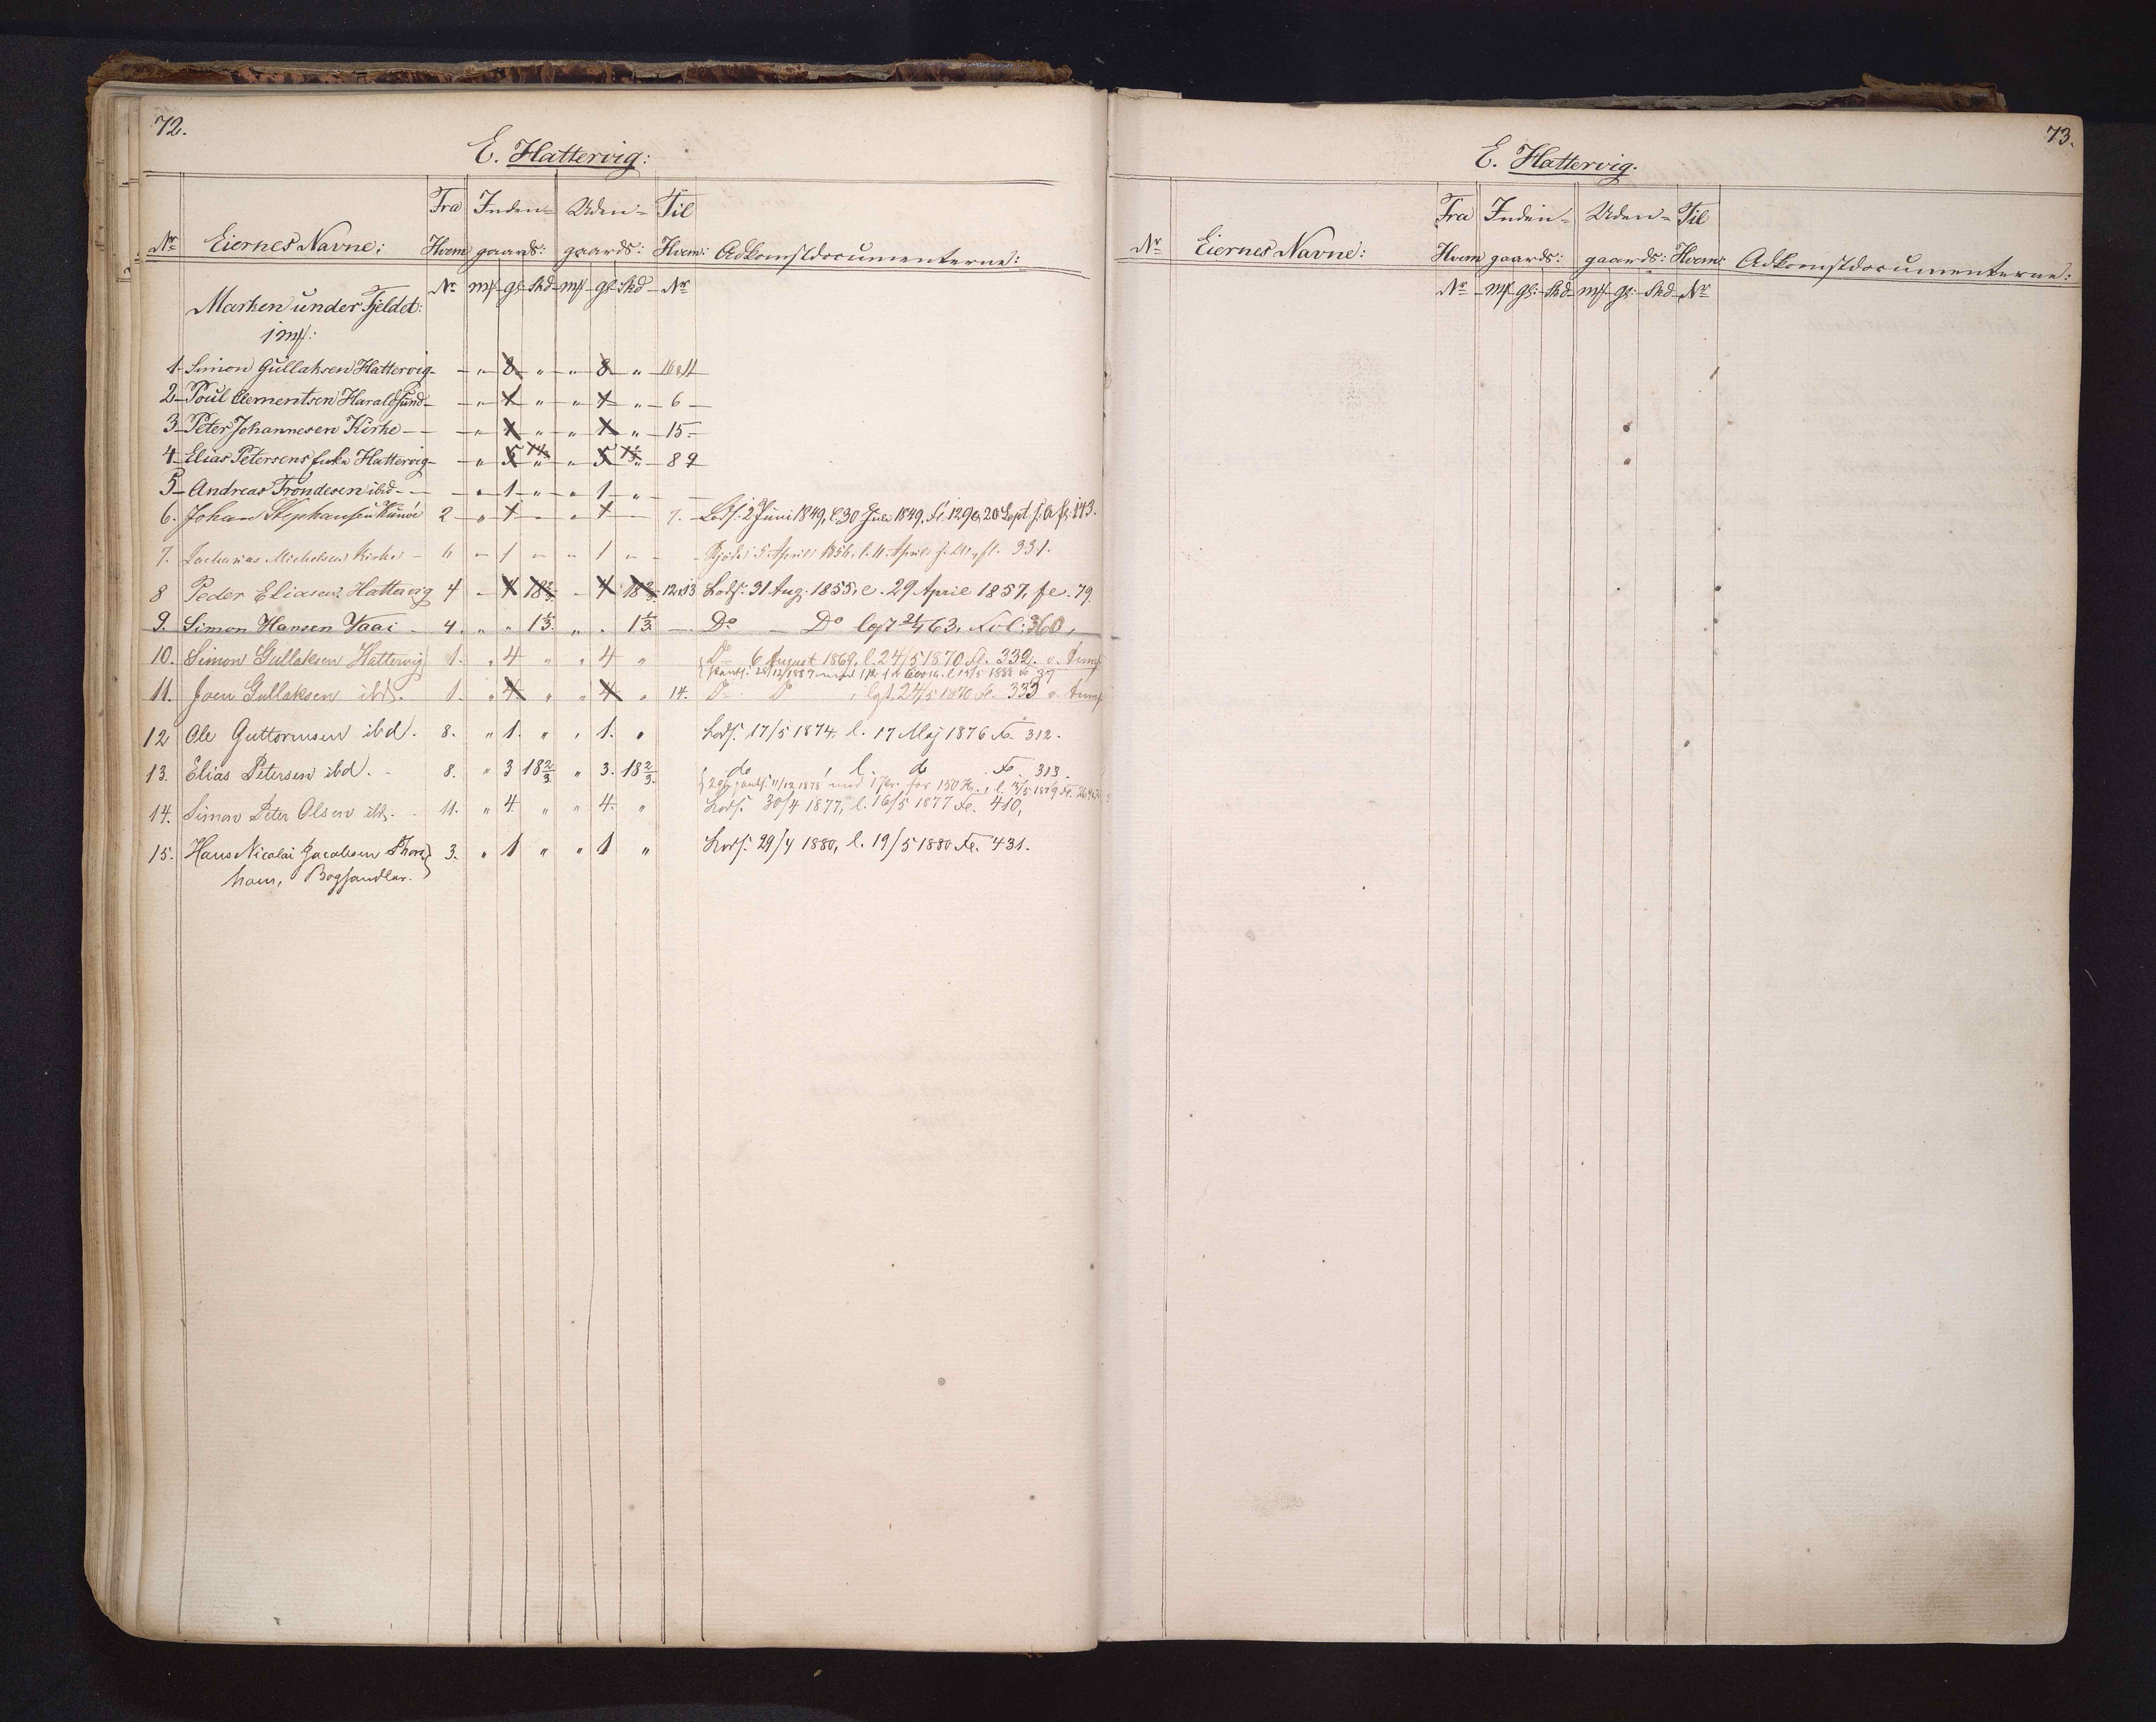 72.
E. Hattervig:
Nr Eiernes Navne: Fra Hvem Inden- gaards: Uden- gaards: Til Hvem: Adkomstdocumenterne:
Nr mk gl Skd mk gl Skd Nr
Marken under Fjeldet:
1 mk:
1 Simon Gullaksen Hattervig - " 8 " " 8 " 10 & 11
2 Poul Clementsen Haraldsund - " 1 " " 1 " 6
3 Peter Johannesen Kirke - " 1 " " 1 " 15
4 Elias Petersens Enke Hattervig - " 5 " " 5 " 8 9
5 Andreas Trondesen ibid - " 1 " " 1 "
6. Johan Stephansen Kunöe 2 " 1 " 1 7. Lods: 2 Juni 1849, l. 30 Juli 1849, fe. 129 & 20 Sept. s. A. fe. 143.
7. Zacharias Michelsen Kirke - 6 - 1 " " 1 " Skjöde 5 April 1856, l. 11. April s. A., fl. 331.
8 Peder Eliasen Hattervig 4 - 4 18 2/3 - 4 18 2/3 12 & 13 Lods: 31 Aug. 1855, l. 29 April 1857, fe. 79.
9. Simon Hansen Vaai - 4. " " 1 1/3 " " 1 1/3 Do - Do lyst 21/4 63, Fol: 360,
10. Simon Gullaksen Hattervig 1. " 4 " " 4 " Do 6 August 1869, l. 24/5 1870 fe. 332.
11. Joen Gullaksen ibd. 1. " 4 " " 4 " 14. Do Do, lyst 24/5 1870 fe. 333
12 Ole Guttormsen ibd. 8. " 1. " " 1. " Lods. 17/5 1874, l. 17 Maj 1876 fe. 312.
13. Elias Petersen ibd. 8. " 3 18 2/3 " 3. 18 2/3. do, l. do fe. 313.
14. Simon Peter Olsen ibd. 11. " 4 " " 4. " Lods. 30/4 1877, l. 16/5 1877 fe. 410,
15. Hans Nicolai Jacobsen Thors- 3. " 1 " " 1 " Lods. 29/4 1880, l. 19/5 1880 fe. 431.
havn, Boghandler.
73.
E. Hattervig.
Nr Eiernes Navne: Fra Hvem Inden- gaards: Uden- gaards: Til Hvem: Adkomstdocumenterne:
Nr mk gl: Skd mk gl: Skd Nr